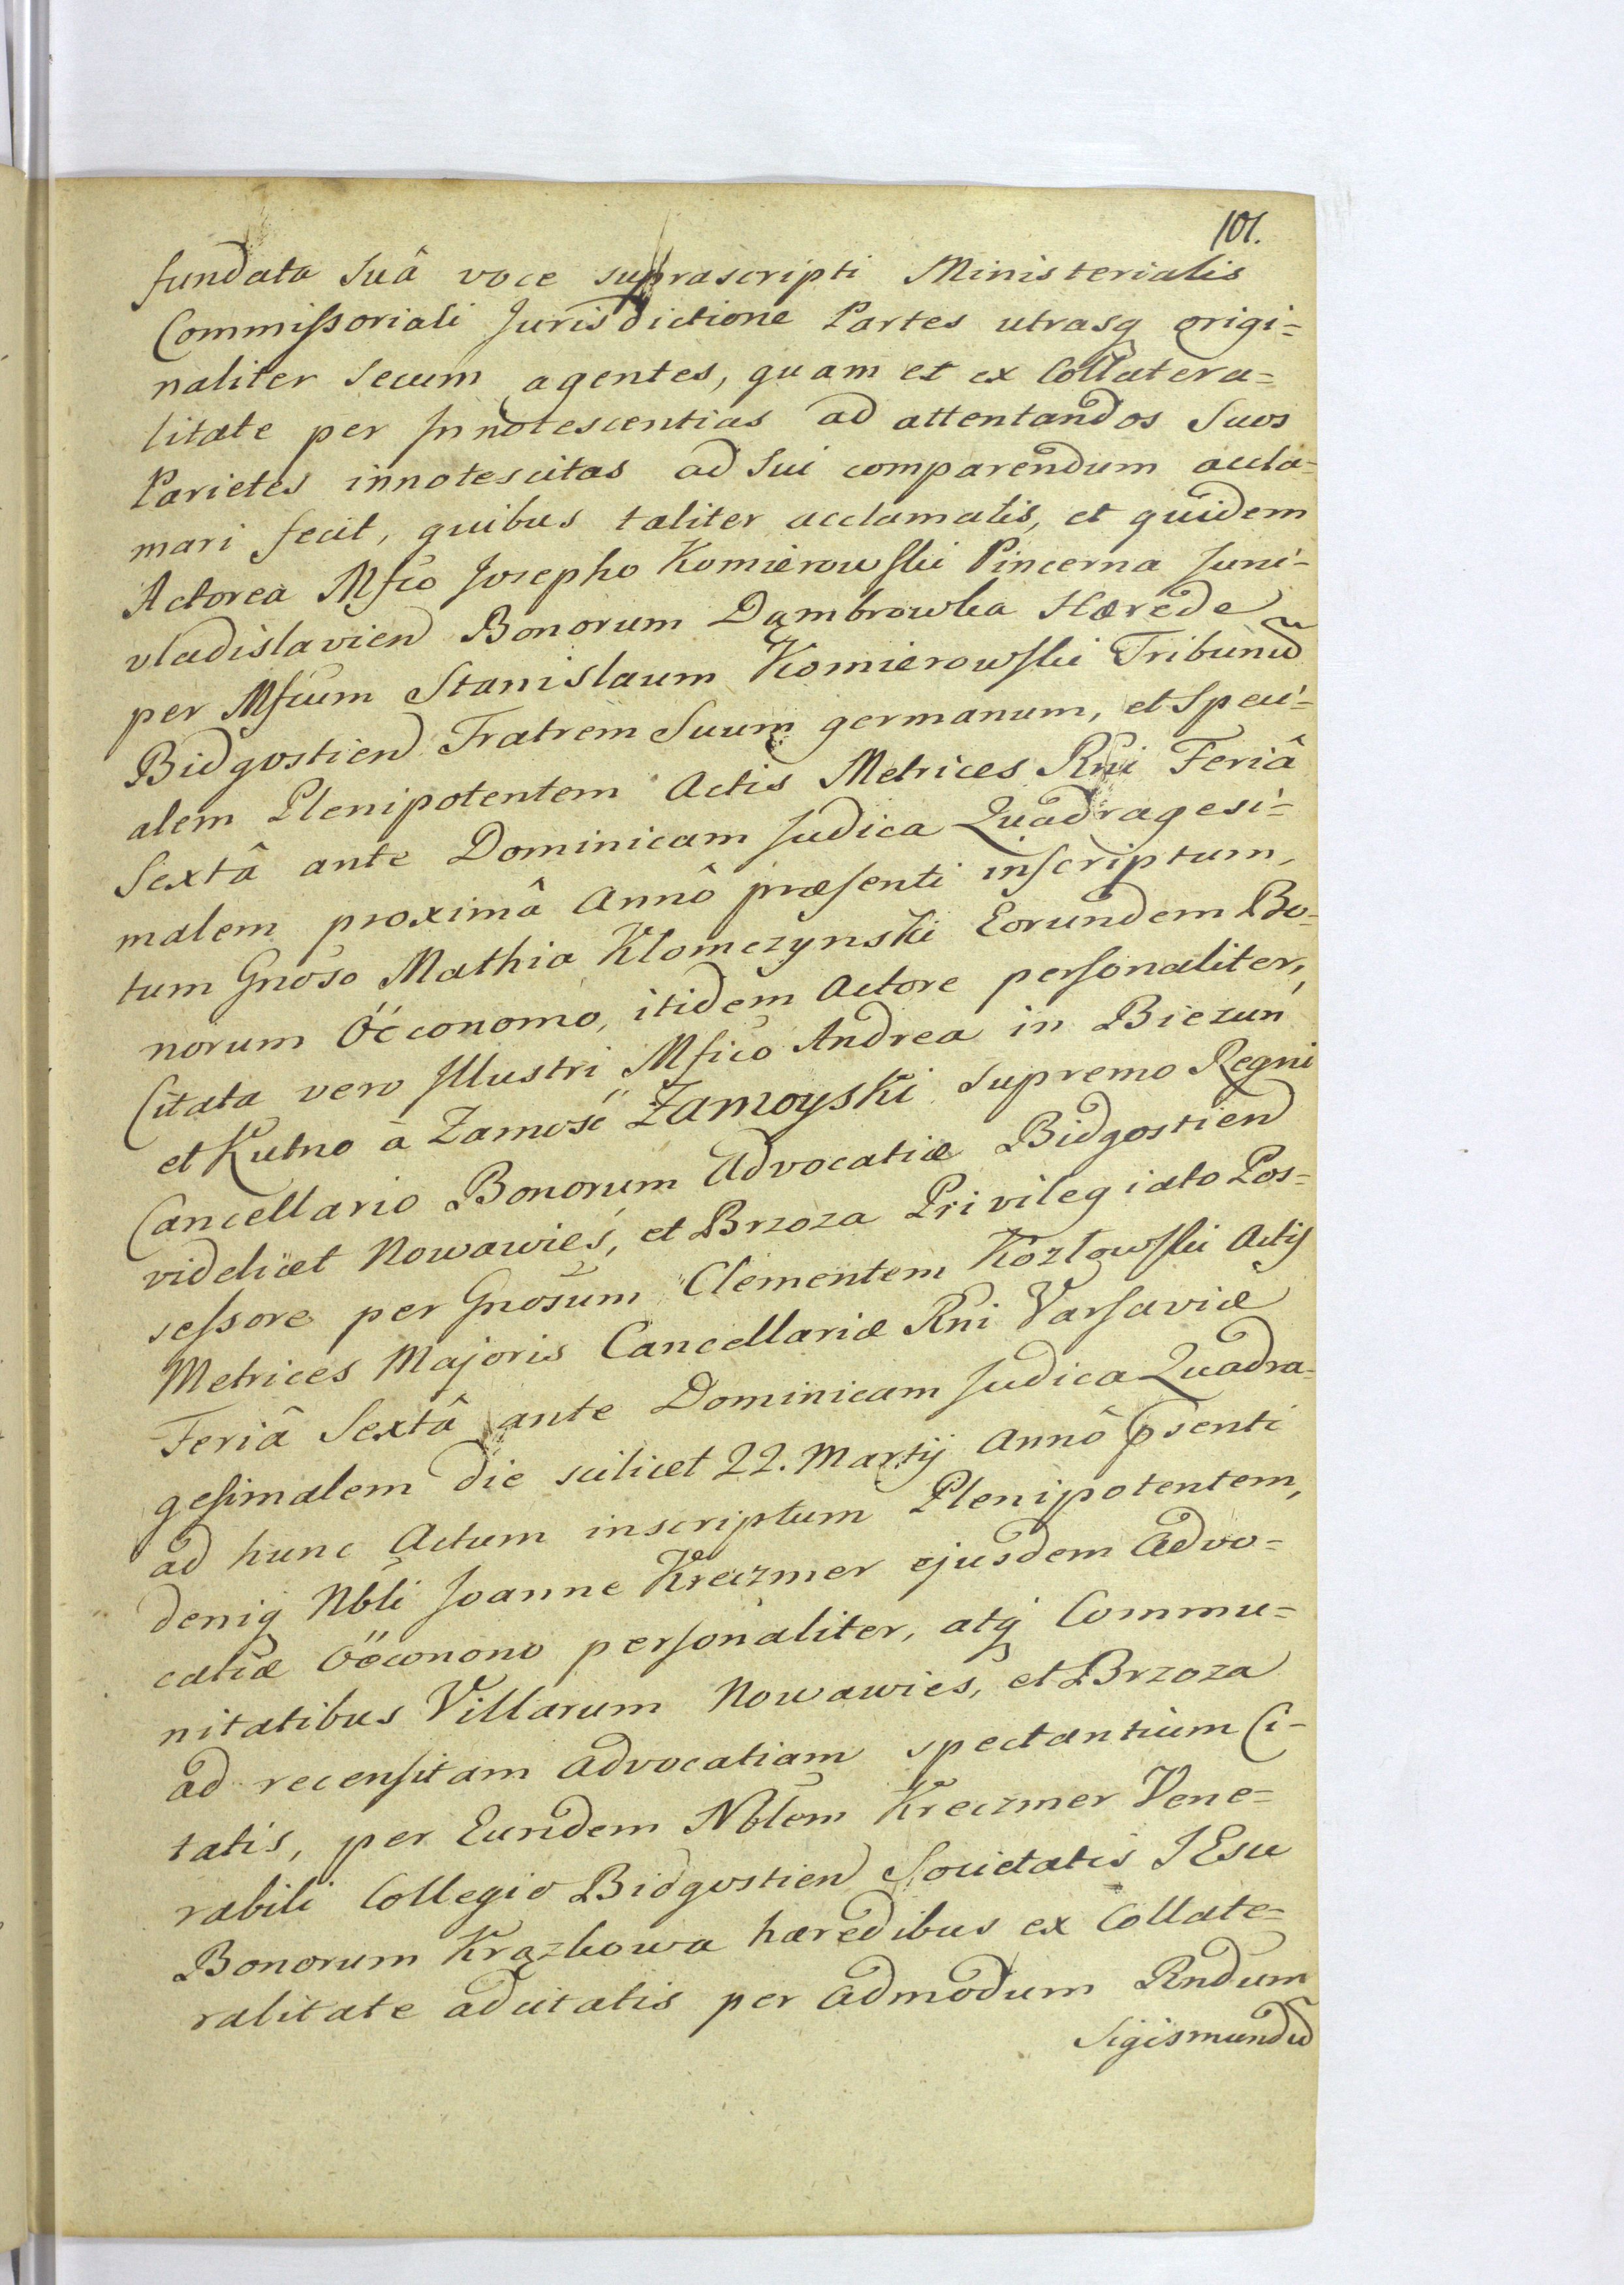 101.
fundata Suâ voce suprascripti Ministerialis
Commissoriali Jurisdictione Partes utrasq origi=
naliter Secum agentes, quam et ex Collatera=
litate per Innotescentias ad attentandos Suos
Parietes innotescitas ad Sui comparendum accla=
mari fecit, quibus taliter acclamatis, et quidem
Actorea Mfico Josepho Komierowski Pincerna Juni=
vladislavien Bonorum Dąmbrowka Hærede
per Mficum Stanislaum Komierowski Tribunũ
Bidgostien Fratrem Suum germanum, et Speci=
alem Plenipotentem Actis Metrices Rni Feriâ
Sextâ ante Dominicam Judica Quadragesi=
malem proximâ Annô præsenti inscriptum,
tum Gnoso Mathia Klomczynski Eorundem Bo=
norum Oëconomo, itidem Actore personaliter,
Citata vero Illustri Mfico Andrea in Biezuń
et Kutno à Zamość Zamoyski Supremo Regni
Cancellario Bonorum Advocatiæ Bidgostien
videlicet Nowawieś, et Brzoza Privilegiato Pos=
sessore per Gnosum Clementem Kozłowski Actis
Metrices Majoris Cancellariæ Rni Varsaviæ
Feriâ Sextâ ante Dominicam Judica Quadra=
gesimalem die scilicet 22. Martij Annô psenti
ad hunc Actum inscriptum Plenipotentem,
deniq Nbli Joanne Kreczmer ejusdem Advo=
catiæ Oëconono personaliter, atq Commu=
nitatibus Villarum Nowawieś, et Brzoza
ad recensitam Advocatiam spectantium Ci=
tatis, per Eundem Nblem Kreczmer Vene=
rabili Collegio Bidgostien Societatis JEsu
Bonorum Krązkowa hæredibus ex Collate=
ralitate adcitatis per Admodum Rndum
Sigismundũ